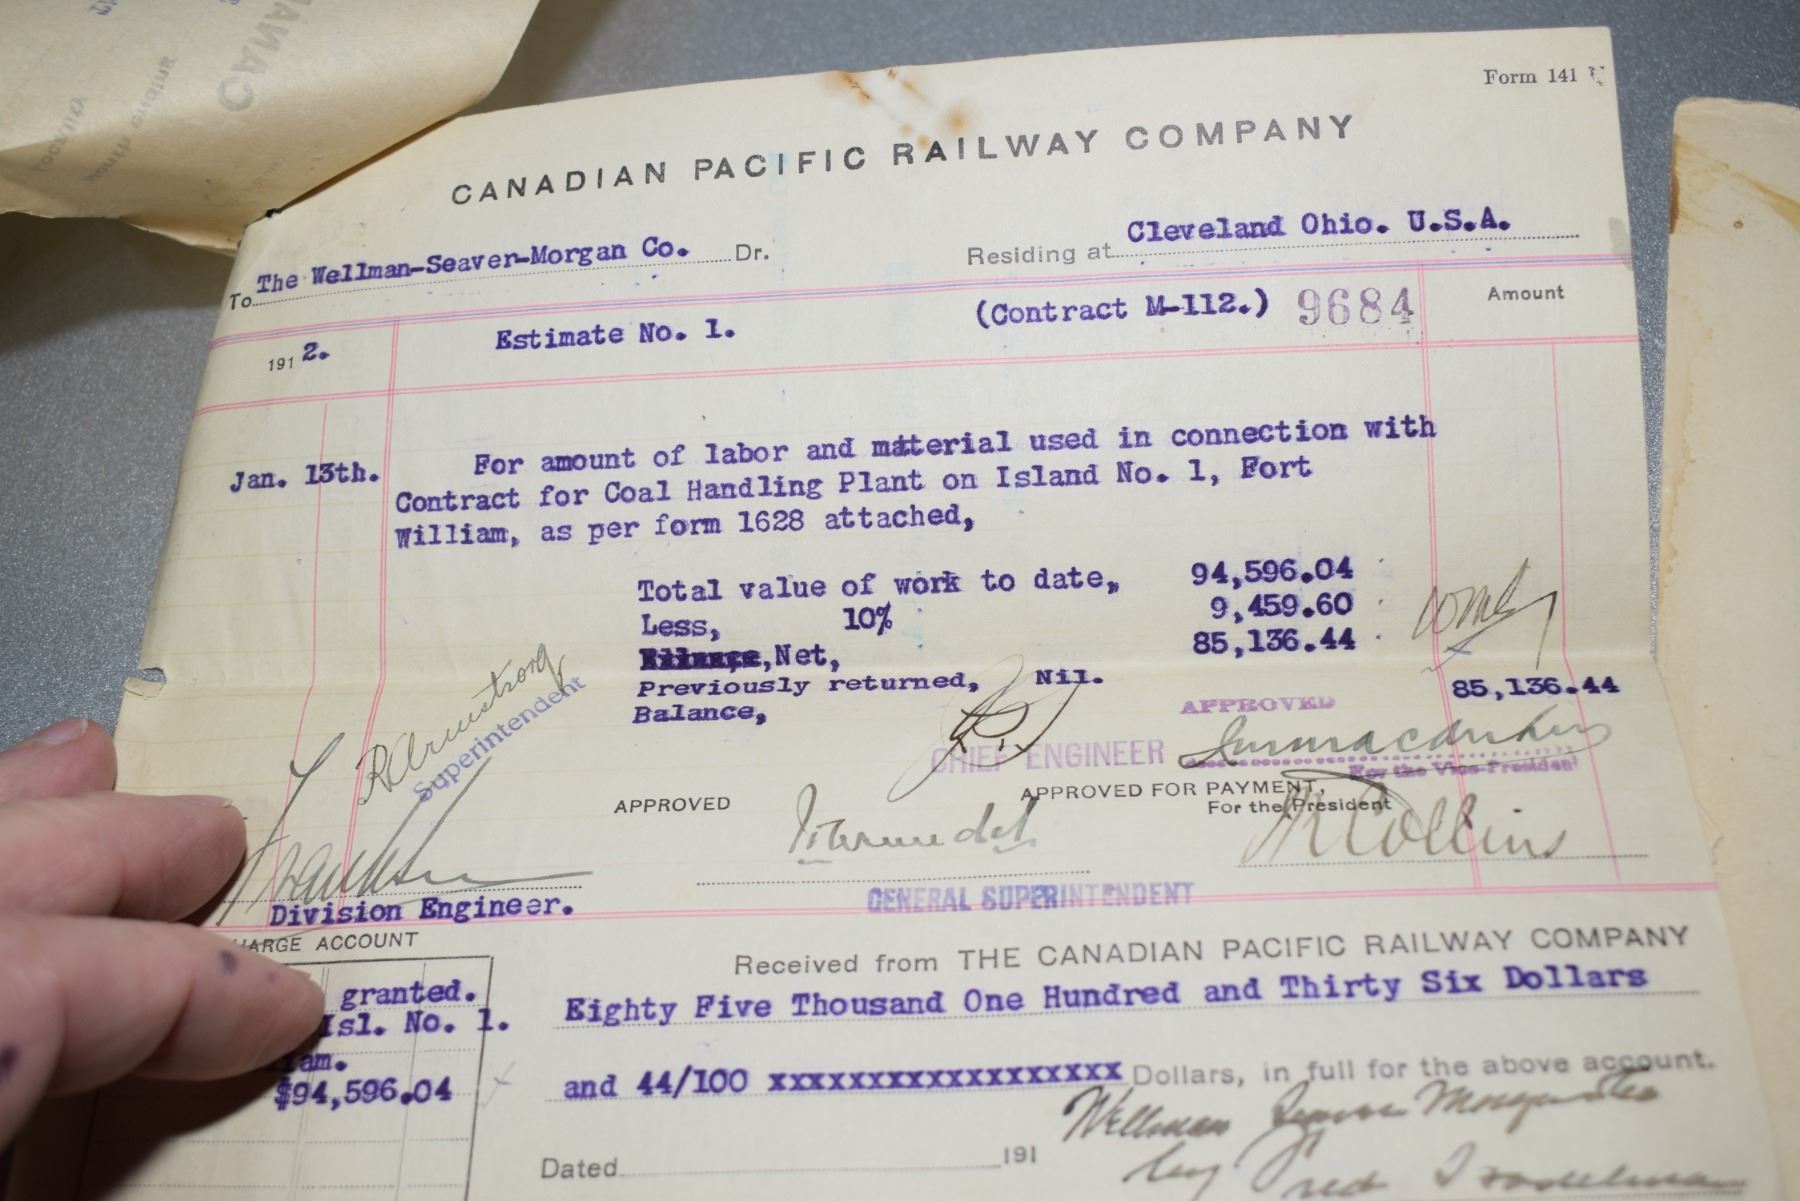 Form 141
CANADIAN PACIFIC RAILWAY COMPANY
To The Wellman-Seaver-Morgan Co. Dr. Residing at Cleveland Ohio. U.S.A.
1912. Estimate No. 1. (Contract M-112.) 9684 Amount
Jan. 13th. For amount of labor and material used in connection with
Contract for Coal Handling Plant on Island No. 1, Fort
William, as per form 1628 attached,
Total value of work to date, 94,596.04
Less, 10% 9,459.60
Net, 85,136.44
Previously returned, Nil.
Balance, 85,136.44
RArmstrong
Superintendent
APPROVED
CHIEF ENGINEER
For the Vice-President
APPROVED APPROVED FOR PAYMENT,
For the President
Collins
Division Engineer.
GENERAL SUPERINTENDENT
ARGE ACCOUNT
granted.
Isl. No. 1.
iam.
$94,596.04
Received from THE CANADIAN PACIFIC RAILWAY COMPANY
Eighty Five Thousand One Hundred and Thirty Six Dollars
and 44/100 xxxxxxxxxxxxxxxxxxx Dollars, in full for the above account.
Wellman Seaver Morgan Co
by
Dated 191